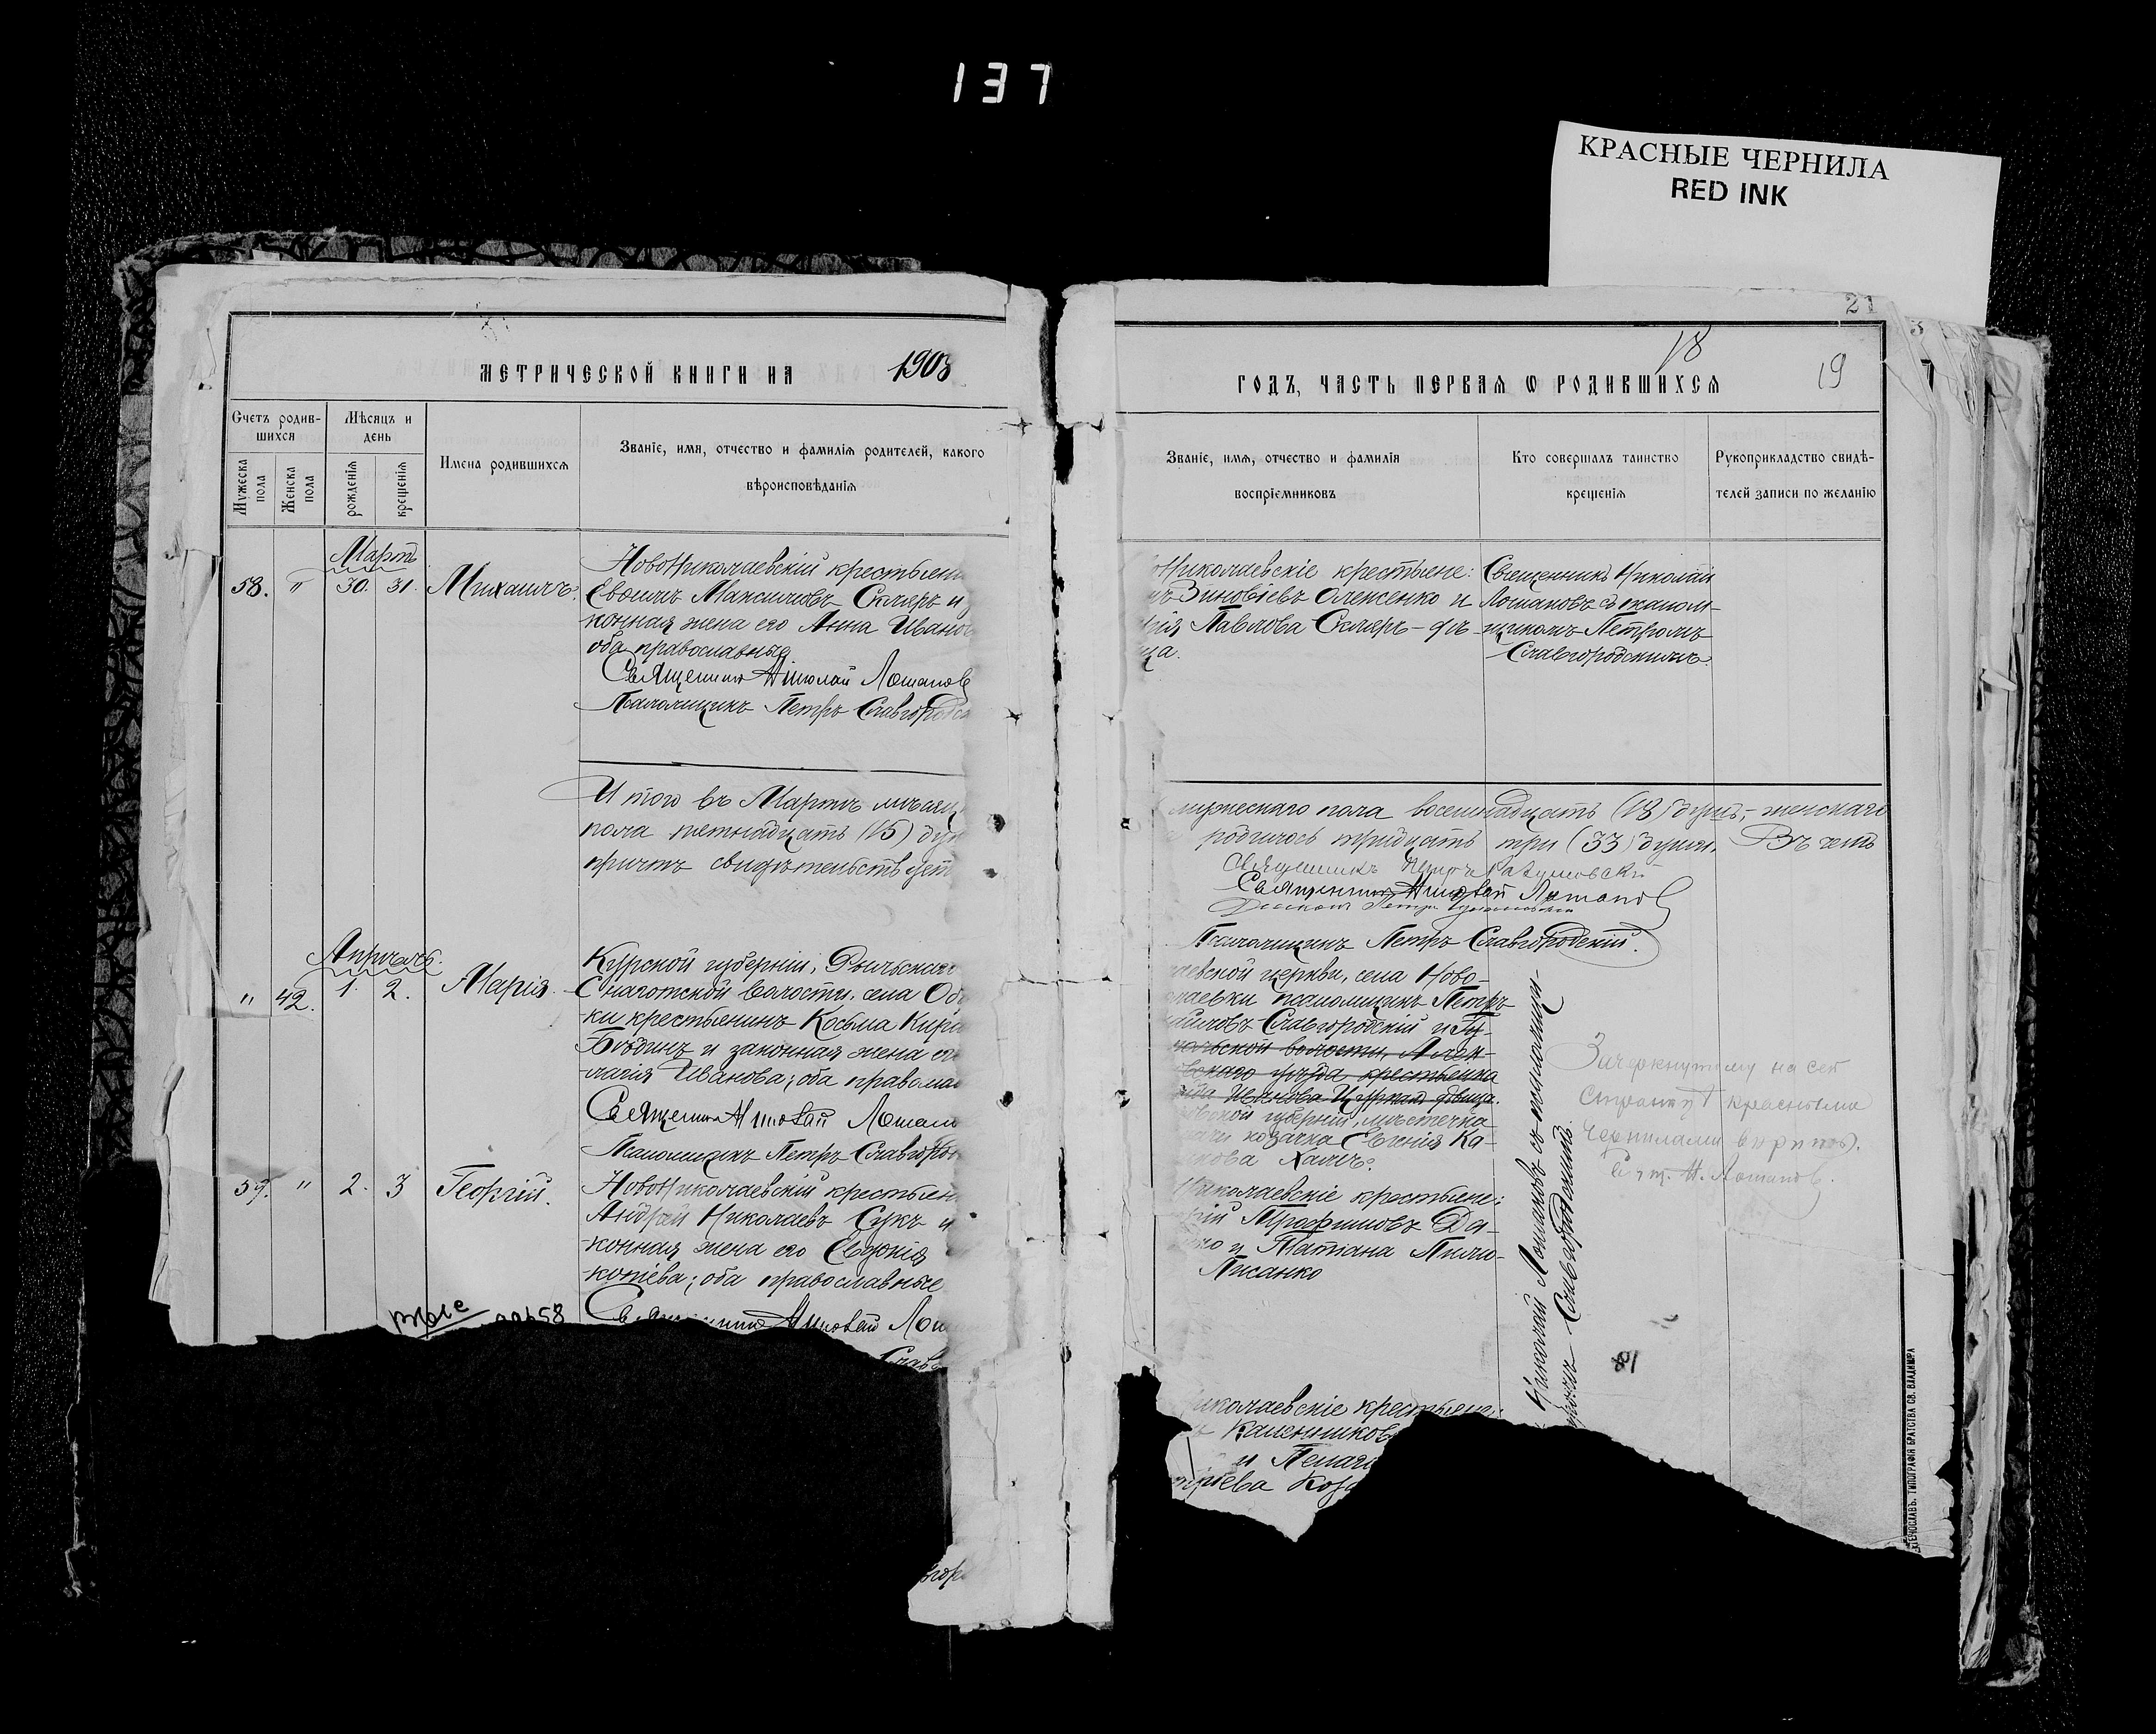 137
КРАСНЫЕ ЧЕРНИЛА
RED INK
21
18
19
МЕТРИЧЕСКОЙ КНИГИ НА 1903
ГОДЪ, ЧАСТЬ ПЕРВАЯ Ѡ РОДИВШИХСЯ
Счетъ родив-
шихся
Мужеска
пола
Женска
пола
Мѣсяцъ и
день
рожденія
крещенія
Имена родившихся
Званіе, имя, отчество и фамилія родителей, какого
вѣроисповѣданія
Званіе, имя, отчество и фамилія
воспріемниковъ
Кто совершалъ таинство
крещенія
Рукоприкладство свидѣ-
телей записи по желанію
Мартъ
58. " 30. 31. Михаилъ.
Новониколаевскій крестьян
Максимовъ Скляръ и
конная жена его Анна Ивано
оба православные
Священникъ Николай Лошановъ
Псаломщикъ Петръ Славгородс
Николаевскіе крестьяне:
Зиновіевъ Олексенко и
Павлова Скляръ – дѣ-
ца.
Священникъ Николай
Лошановъ съ псалом-
щикомъ Петромъ
Славгородскимъ.
Итого въ Мартѣ мѣсяц
пола пятнадцать (15) ду
причтъ свидѣтельствует
мужескаго пола восемнадцать (18) душъ, – женскаго
родилось тридцать три (33) души. Въ чемъ
Священникъ Петръ
Священникъ Николай Лошановъ
Діаконъ Петръ
Псаломщикъ Петръ Славгородскій.
Апрѣль.
" 42. 1. 2. Марія.
Курской губерніи, Рыльскаго
Снаготской волости, села Об
ки крестьянинъ Косьма Кири
и законная жена ег
Иванова; оба правосла
Священникъ Николай Лошано
Псаломщикъ Петръ Славгоро
аевской церкви, села Ново-
лаевки псаломщикъ Петръ
Славгородскій и Гу-
польской волости, Алек-
вскаго уѣзда крестьянка
Иванова дѣвица.
губерніи, мѣстечка
козачка Евгенія Ка-
Николай Лошановъ съ псаломщи-
Славгородскимъ.
Зачеркнутому на сей
страницѣ красными
чернилами вѣрить.
Свящ. Н. Лошановъ.
59. " 2. 3 Георгій.
Новониколаевскій крестьян
Андрей Николаевъ Сукъ и
конная жена его Евдокія
копіева; оба православные
Священникъ Николай Лош
Славг
Николаевскіе крестьяне:
Трофимовъ Да-
и Татіана
Писанко
81
иколаевскіе крестьяне:
Калинниковъ
и Пелагі
ЕКАТЕРИНОСЛАВЪ. ТИПОГРАФІЯ БРАТСТВА СВ. ВЛАДИМІРА